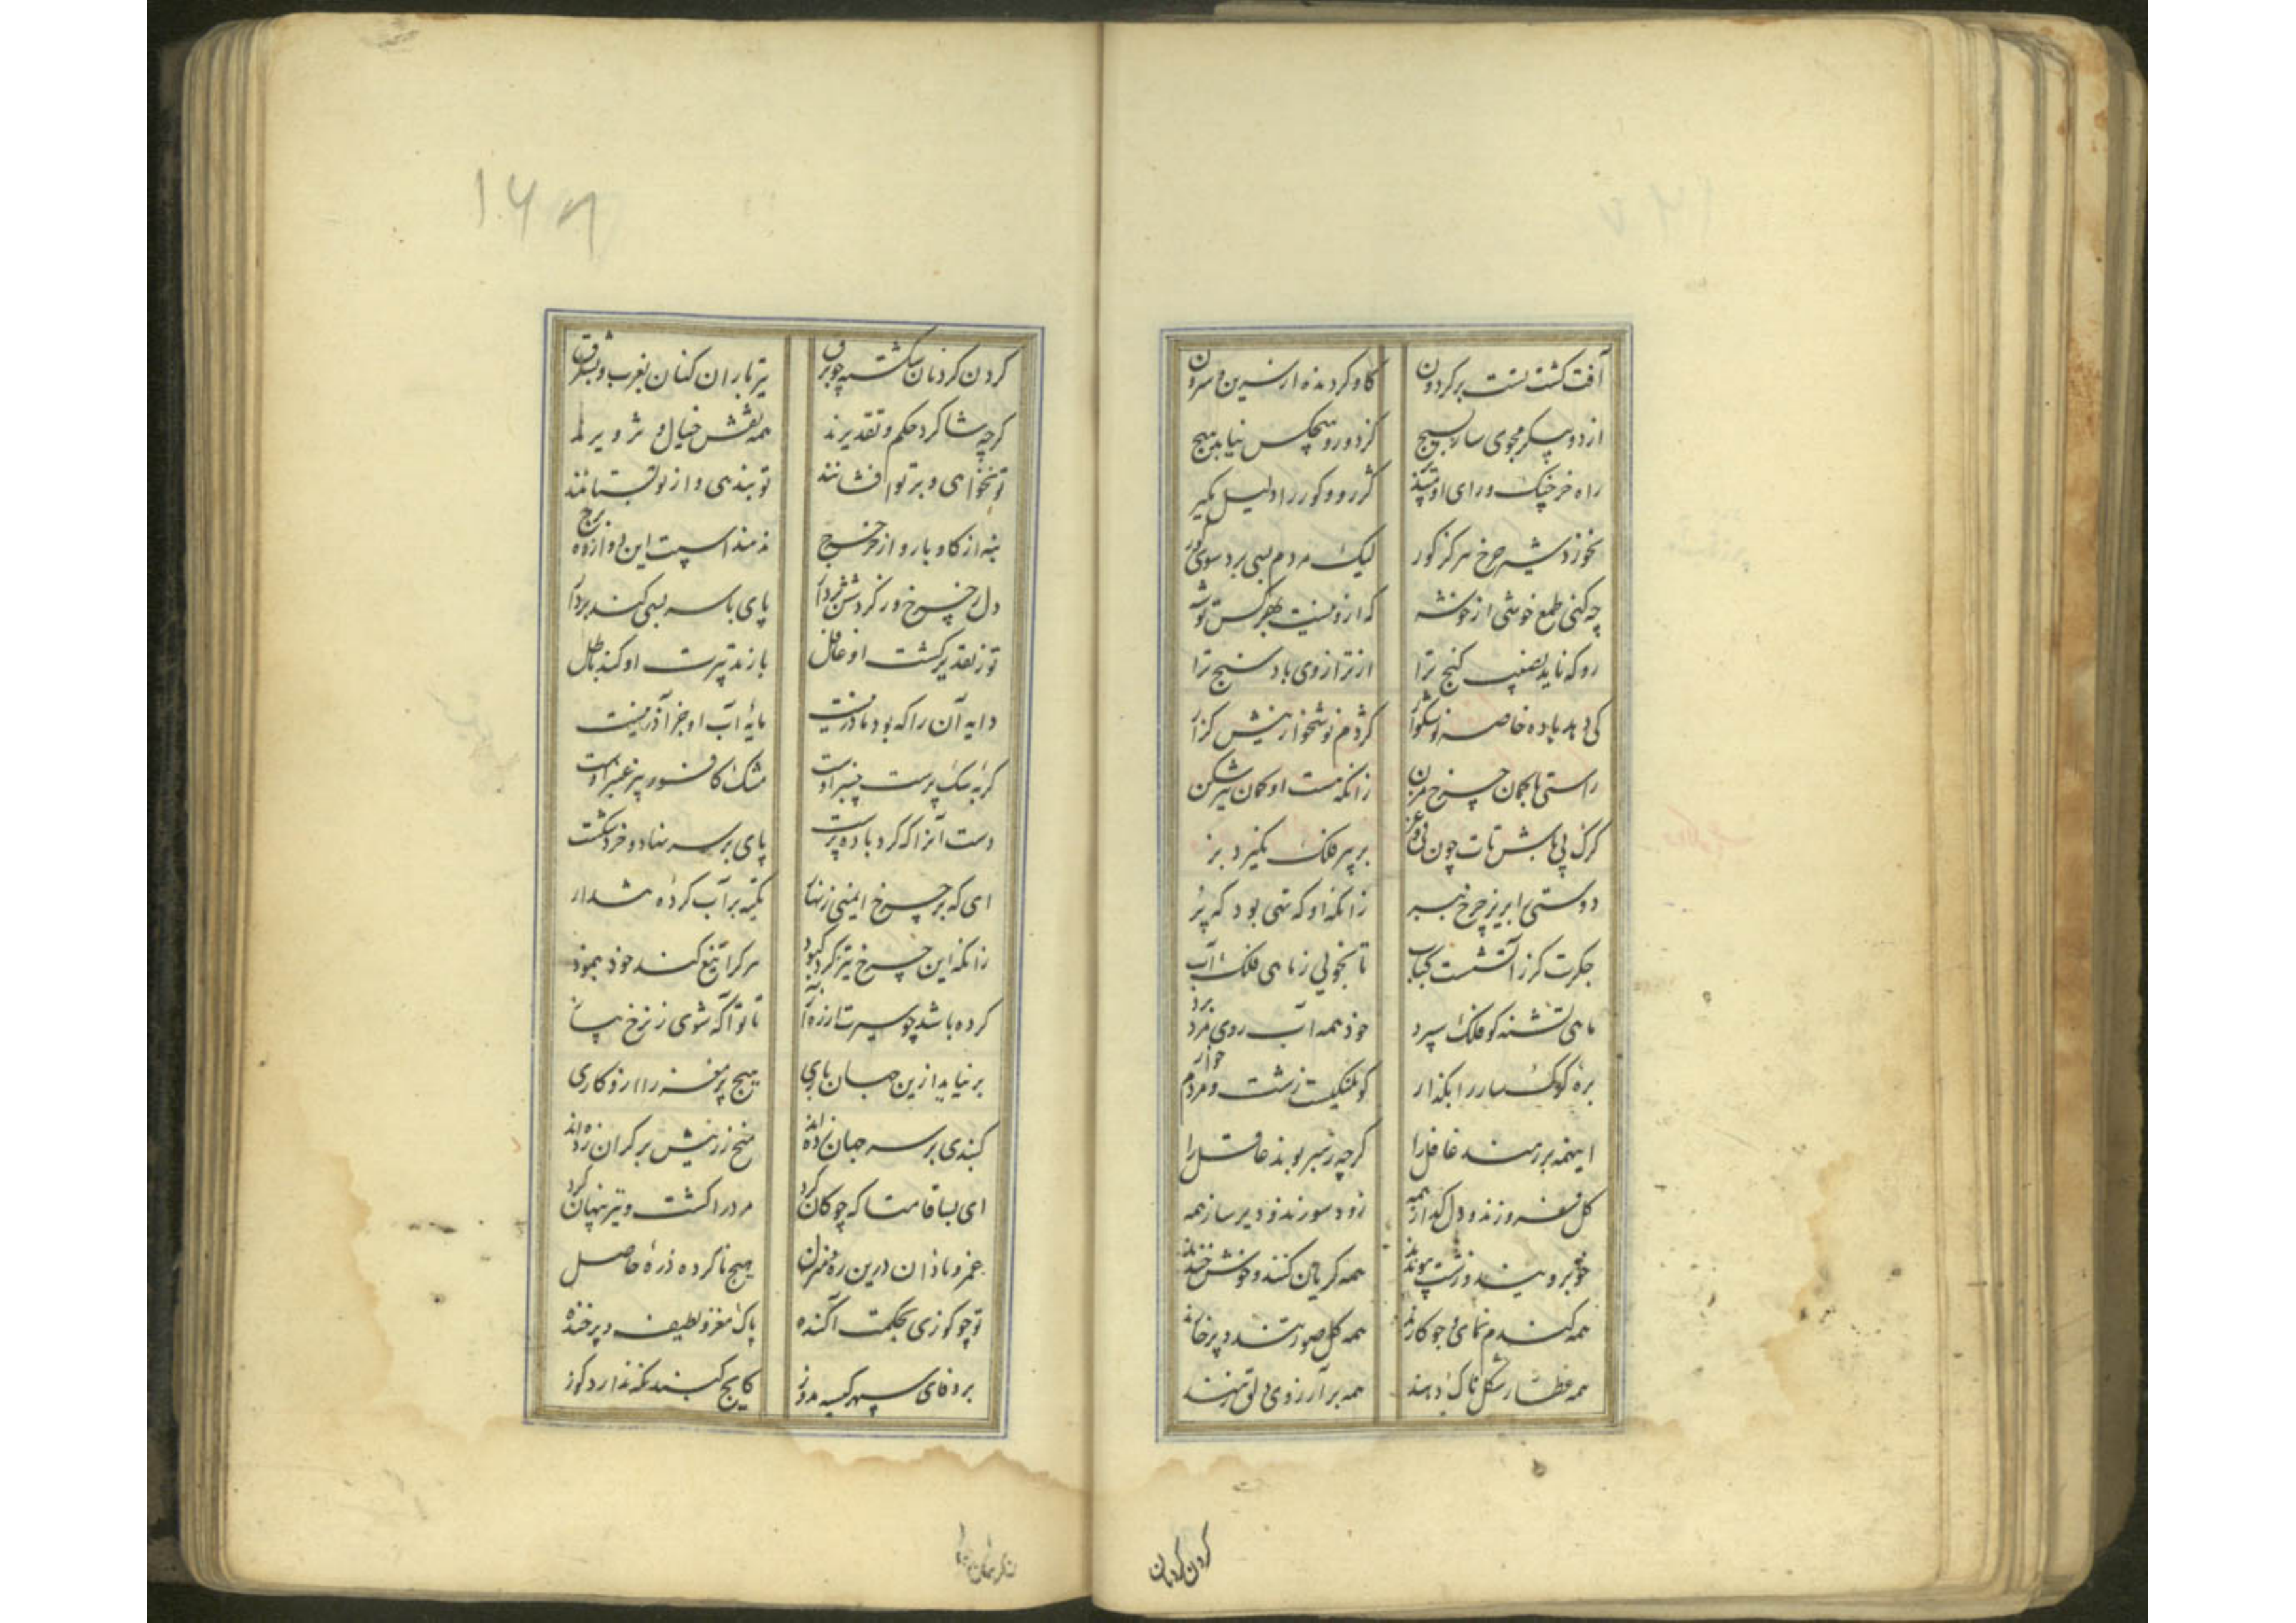 آفت کشت تست بر کردون
کاو کردنده از سرین و سرون
از دو پیکر مجوی ساز بسیج
کز دو رو هیچکس نیابد هیچ
راه خرچنک ورای او مپذیر
کژرو و کور را دلیل مکیر
نخورد شیر چرخ هرکز کور
لیک مردم بسی برد سوی کور
چه کنی طمع خوشی از خوشه
که ازو نیست هیچکس توشه
رو که ناید نصیب کنج ترا
از ترازوی باد سنج ترا
کی دهد باده خاصه نوشکوار
کژدم نوشخوار نیش کزار
راستی با کمان چرخ مزن
زانکه هست او کمان تیر شکن
کرک پی باش تات چون پی و غز
بر سر فلک نکیرد بز
دوستی را بریز چرخ مبر
زانکه او که تهی بود که پر
جکرت کر ز آتشست کباب
تا نجویی ز ماهی فلک آب
ماهی تشنه کو فلک سپرد
خود همه آب روی مرد برد
بره کوک سار را بکذار
کو پلنکیست زشت و مردم خوار
اینهمه بر رهند غافل را
کرچه رهبر بوند عاقل را
کل فروزنده و دل کدازهمه
زود سوزند و دیر ساز همه
خوب رویند و زشت پیوندند
همه کریان کنند و خوش خندند
همه کندم نمای و جو کارند
همه کل صورتند و پر خارند
همه عطار شکل ناک دهند
همه بر آرزوی دل نهند
کردن کردنان
کردن کردنان شکسته چو برق
تیرباران کنان بغرب و بشرق
کرچه شاکرد حکم و تقدیرند
همه نقش خیال و تزویرند
تو نخواهی و بر تو افشانند
تو بندهی و از تو بستانند
بنه از کاو بار و از خر خرج
نه مندا سپست این ده و از ده برج
دل ز چرخ و ز کردشش بردار
پای با سر بسی کند بردار
تو ز تقدیر کشت او غافل
باز تدبیرت او کند باطل
دایه آن را که بود مادر نیست
مایه آب او جز آذر نیست
کربه سک پرست چنبر اوست
مشک کافور بیز عنبر اوست
دست آنرا که کرد باده پرست
پای بر سر نهاد و خرد شکست
ای که بر چرخ ایمنی زنهار
تکیه بر آب کرده هشدار
زانکه این چرخ تیز کرد کبود
هر کرا تیغ کند خود بنمود
تا تو آکه شوی ز نرخ پیاز
هیچ پر مغز را ازو کاری
بر نیاید ازین جهان باری
کنبدی بر سر جهان زده اند
میخ زرینش بر کران زده اند
ای بسا قامتا که چو کان کرد
مرد را کشت و تیر پنهان کرد
عمر و نادان درین ره منزل
هیچ ناکرده ذره حاصل
تو چو کوزی بحکمت آکنده
پاک مغز و لطیف و پر خنده
بر وفای سپهر کیسه مدوز
کایچ کنبد نکه ندارد کوز
۱۶۸